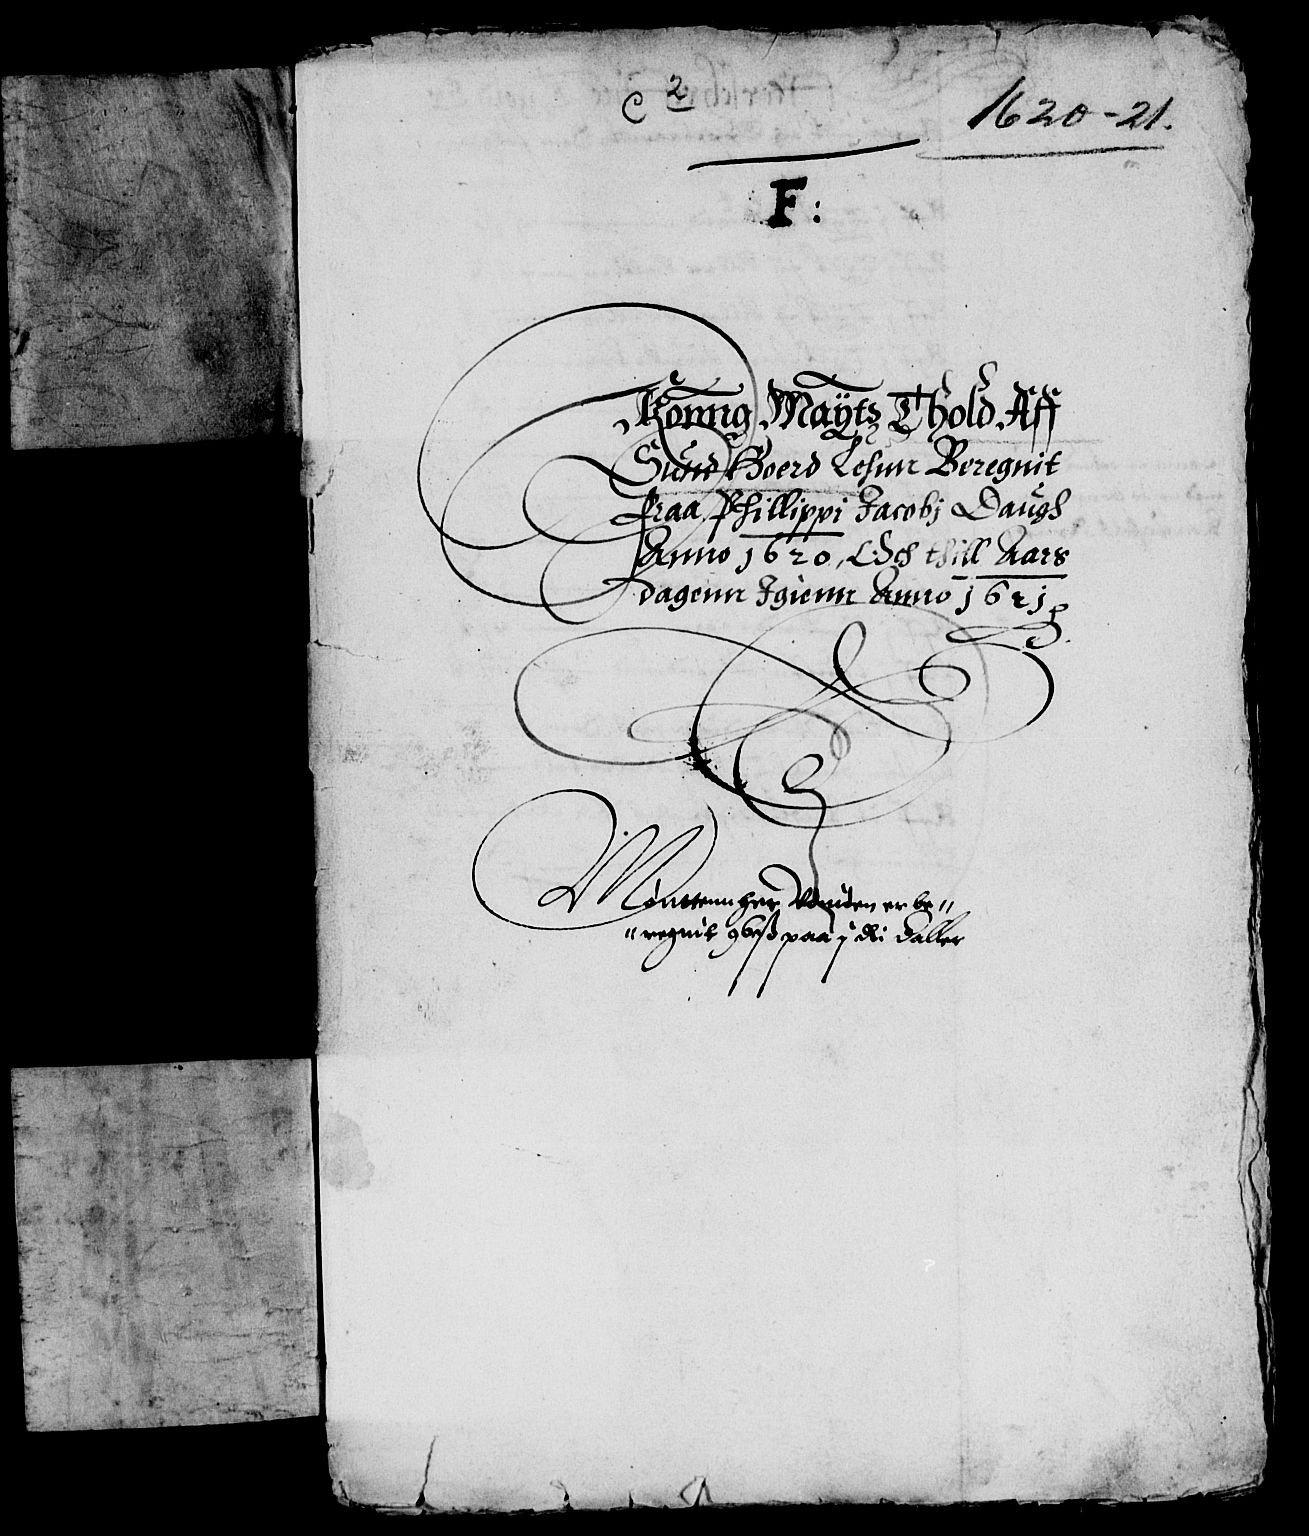 C 2
1620-21.
F:
Konng Maÿts Thold Aff
Sund Hoerd Lehnn Beregnit
fraa Phillippi Jacobj Daugh
Anno 1620, Och thill Aars
dagenn Igienn Anno 1621
Mønttenn her Vdinden er be〃
〃regnit paa j Ri Daller